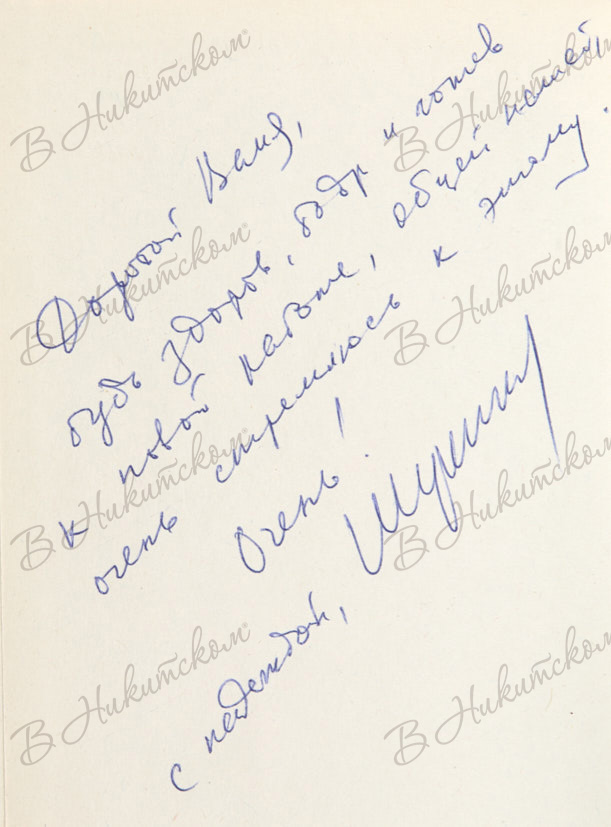 Дорогой Ваня,
будь здоров, бодр и готов
к новой работе, общей нашей,
очень стремлюсь к этому.
Очень!
с надеждой, Шукшин
В Никитском
В Никитском
В Никитском
В Никитском
В Никитском
В Никитском
В Никитском
В Никитском